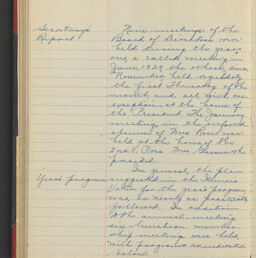 Secretary's
Report
Nine meetings of the
Board of Directors were
held during the year,
one a called meeting in
June, 1929, the others, Aug.
November, held regularly
the first Thursday of the
month, and all but one
exception at the home of
the President. The January
meeting, in the
absence of Mrs. Rose was
held at the home of the
2nd V. Pres. Mrs. who
presided.
Year's program
In general, the plan
suggested in the
for the year's program
was as nearly as practicable
followed. In addition
to the annual meeting
six luncheon member-
ship meetings were held
with programs as indicated
below: